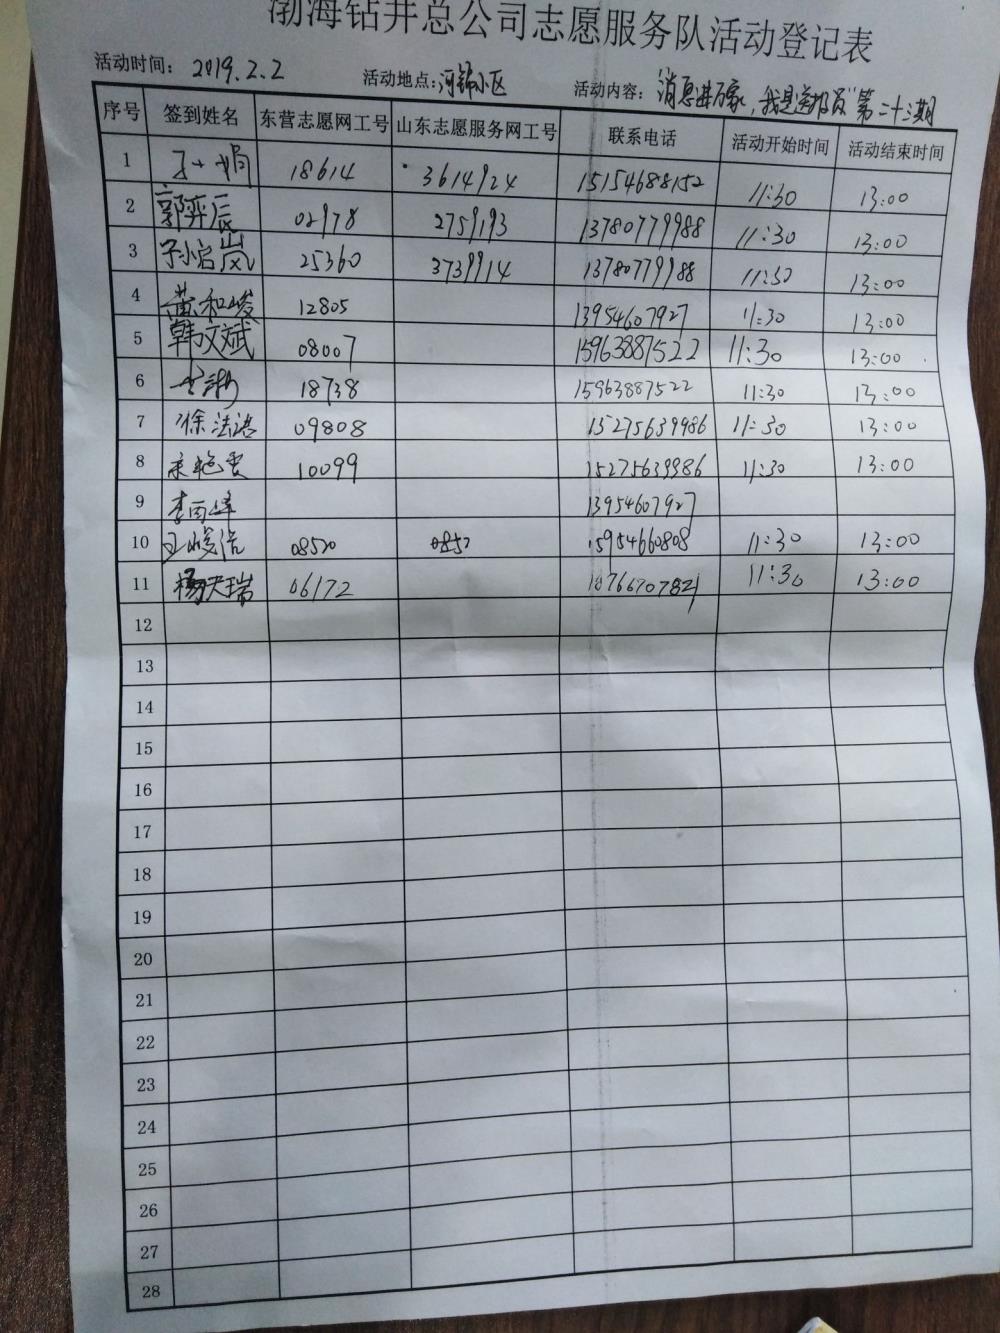 渤海钻井总公司志愿服务队活动登记表
活动时间：2019.2.2 活动地点：河锦小区 活动内容：消息进万家，我是送报员"第二十三期
序号 签到姓名 东营志愿网工号 山东志愿服务网工号 联系电话 活动开始时间 活动结束时间
1 18614 3614924 15154688152 11:30 13:00
2 郭弈辰 02978 2759193 13780779988 11:30 13:00
3 孙启岚 25360 3739914 13780779988 11:30 13:00
4 黄和峻 12805 13954607927 11:30 13:00
5 韩文斌 08007 15963887522 11:30 13:00
6 18738 15963887522 11:30 13:00
7 徐法浩 09808 15275639986 11:30 13:00
8 10099 15275639986 11:30 13:00
9 李雨峰 13954607927
10 王俊浩 08520 0852 15954660808 11:30 13:00
11 杨天瑞 06172 11:30 13:00
12
13
14
15
16
17
18
19
20
21
22
23
24
25
26
27
28